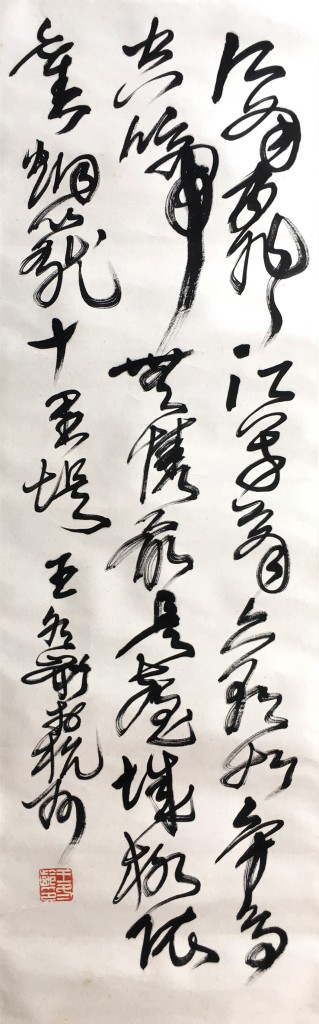 江雨霏霏江草齊六朝如夢鳥
空啼無情最是臺城柳依
舊烟籠十里堤王冬齡書杭州